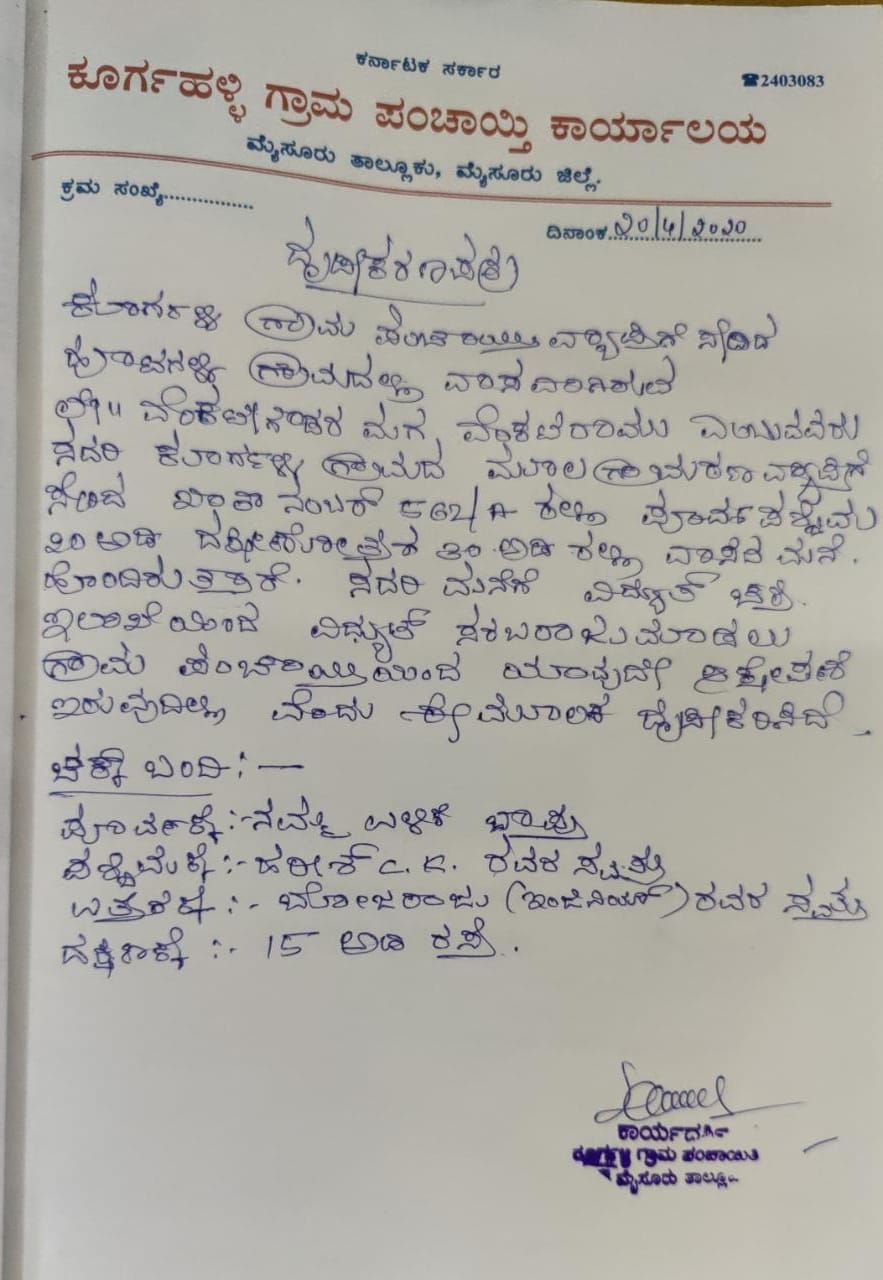 ಕರ್ನಾಟಕ ಸರ್ಕಾರ
☎2403083
ಕೂರ್ಗಹಳ್ಳಿ ಗ್ರಾಮ ಪಂಚಾಯ್ತಿ ಕಾರ್ಯಾಲಯ
ಮೈಸೂರು ತಾಲ್ಲೂಕು, ಮೈಸೂರು ಜಿಲ್ಲೆ.
ಕ್ರಮ ಸಂಖ್ಯೆ...............
ದಿನಾಂಕ ೨೦/೪/೨೦೨೦
ದೃಢೀಕರಣ ಪತ್ರ
ಕೂರ್ಗಳ್ಳಿ ಗ್ರಾಮ ಪಂಚಾಯಿತಿ ವ್ಯಾಪ್ತಿಗೆ ಸೇರಿದ
ಹೂಟಗಳ್ಳಿ ಗ್ರಾಮದಲ್ಲಿ ವಾಸವಾಗಿರುವ
ಲೇ॥ ವೆಂಕಟೇಗೌಡರ ಮಗ ವೆಂಕಟರಾಮು ಎಂಬುವವರು
ಸದರಿ ಕೂರ್ಗಳ್ಳಿ ಗ್ರಾಮದ ಮೂಲ ಗ್ರಾಮಠಾಣಾ ವ್ಯಾಪ್ತಿಗೆ
ಸೇರಿದ ಖಾತಾ ನಂಬರ್ 562/A ರಲ್ಲಿ ಪೂರ್ವ ಪಶ್ಚಿಮ
೨೦ ಅಡಿ ದಕ್ಷಿಣೋತ್ತರ ೩೦ ಅಡಿ ರಲ್ಲಿ ವಾಸದ ಮನೆ
ಹೊಂದಿರುತ್ತಾರೆ. ಸದರಿ ಮನೆಗೆ ವಿದ್ಯುತ್ ಚಕ್ತಿ
ಇಲಾಖೆಯಿಂದ ವಿದ್ಯುತ್ ಸರಬರಾಜು ಮಾಡಲು
ಗ್ರಾಮ ಪಂಚಾಯ್ತಿಯಿಂದ ಯಾವುದೇ ಆಕ್ಷೇಪಣೆ
ಇರುವುದಿಲ್ಲಾ ವೆಂದು ಈ ಮೂಲಕ ದೃಢೀಕರಿಸಿದೆ.
ಚಕ್ಕ್ ಬಂದಿ :—
ಪೂರ್ವಕ್ಕೆ :- ನಮ್ಮ ಬಳಿಕೆ ಬಾಪ್ತು
ಪಶ್ಚಿಮಕ್ಕೆ :- ಹರೀಶ್ C.K. ರವರ ಸ್ವತ್ತು
ಉತ್ತರಕ್ಕೆ :- ಬೋಜರಾಜು (ಇಂಜಿನಿಯರ್) ರವರ ಸ್ವತ್ತು
ದಕ್ಷಿಣಕ್ಕೆ :- 15 ಅಡಿ ರಸ್ತೆ.
ಕಾರ್ಯದರ್ಶಿ
ಕೂರ್ಗಳ್ಳಿ ಗ್ರಾಮ ಪಂಚಾಯಿತಿ
ಮೈಸೂರು ತಾಲ್ಲೂಕು